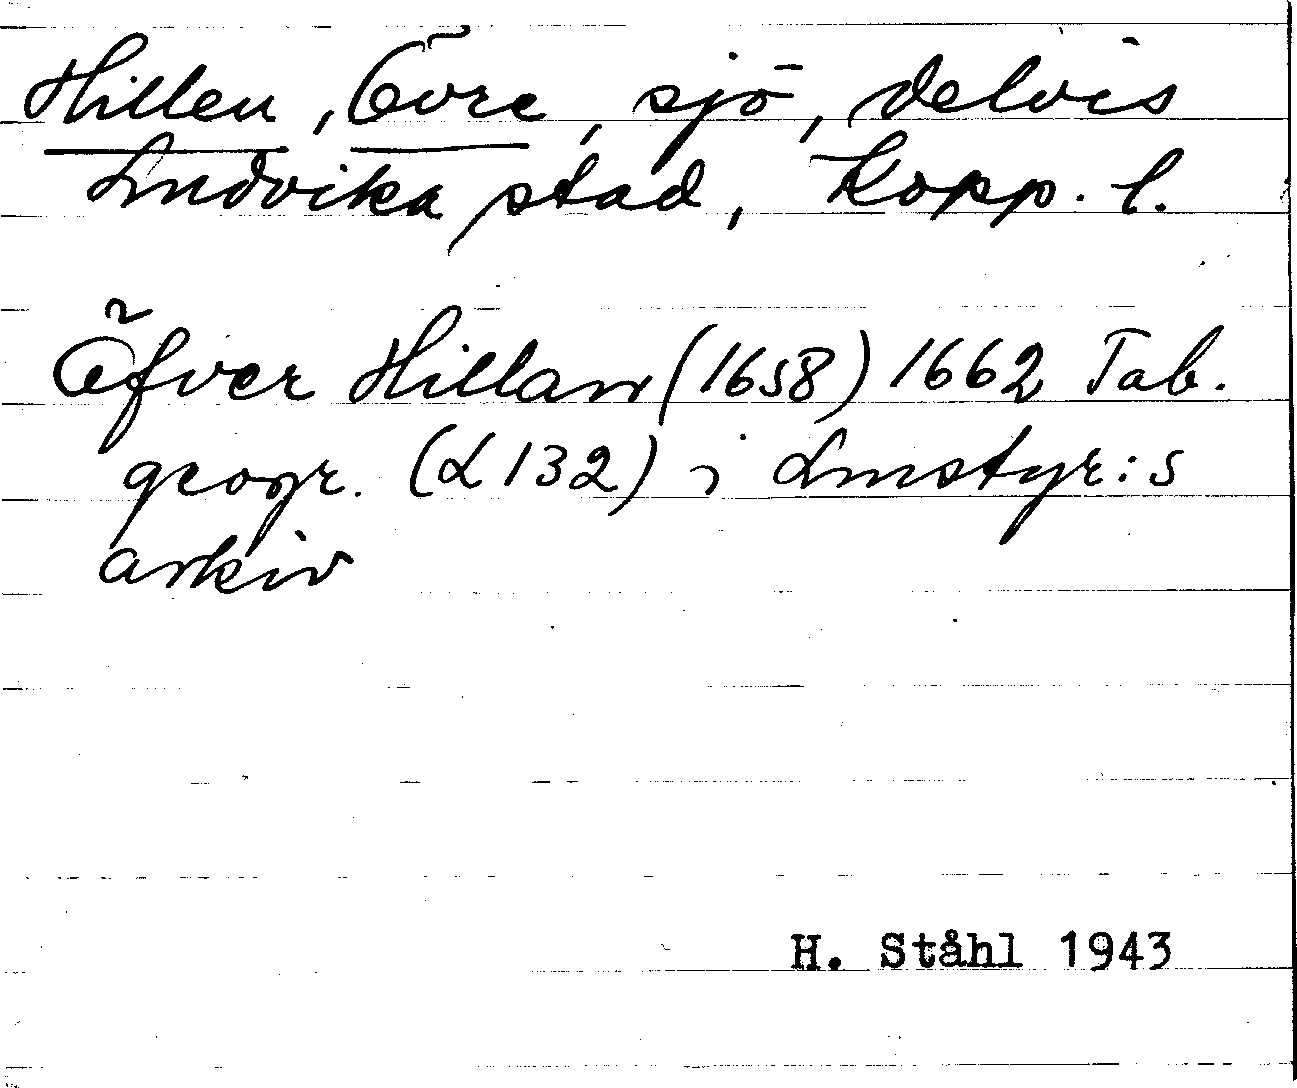 Hillen, Övre, sjö, delvis
Ludvika stad, Kopp. l.
Öfver Hillan (1658) 1662 Tab.
geogr. (L 132) i Lmstyr:s
arkiv
H. Ståhl 1943